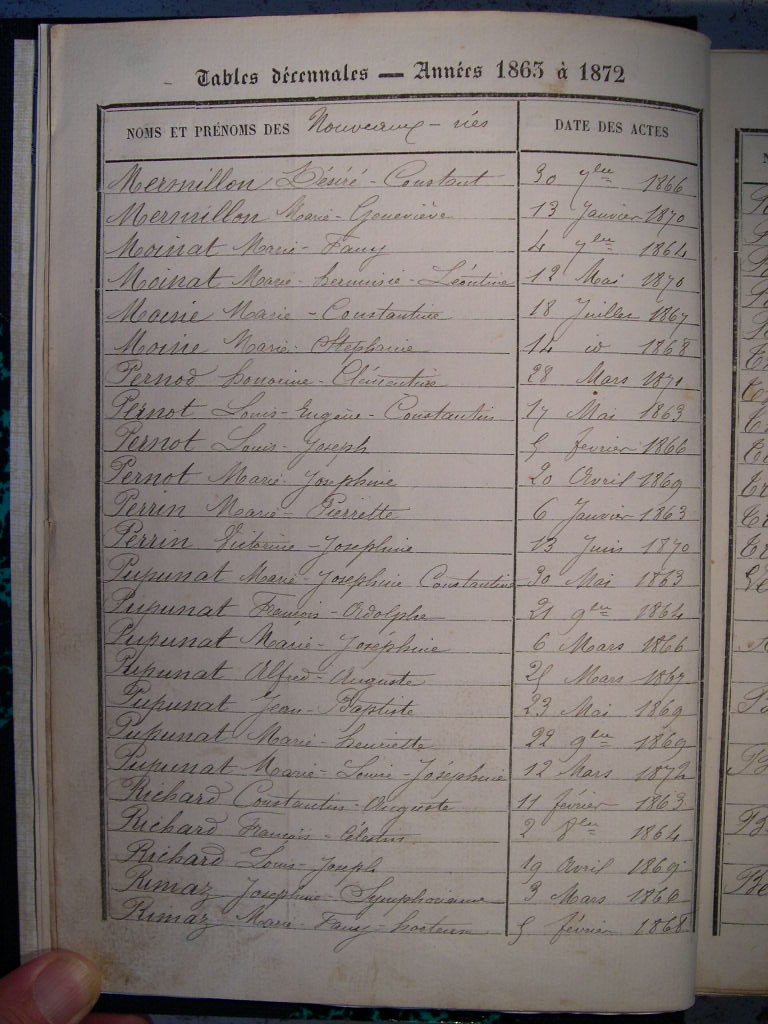 Tables décennales — Années 1863 à 1872
NOMS ET PRÉNOMS DES Nouveaux-nés DATE DES ACTES
Mermillon Désiré-Constant 30 7bre 1866
Mermillon Marie-Geneviève 13 Janvier 1870
Moinat Marie-Fany 4 7bre 1864
Moinat Marie-herminie-Léontine 12 Mai 1870
Moine Marie-Constantine 18 Juillet 1867
Moine Marie-Stéphanie 14 id 1868
Pernod honorine-Clémentine 28 Mars 1871
Pernot Louis-Eugène-Constantin 17 Mai 1863
Pernot Louis-Joseph 5 février 1866
Pernot Marie-Josephine 20 Avril 1869
Perrin Marie-Pierrette 6 Janvier 1863
Perrin Victorine-Josephine 13 Juin 1870
Pupunat Marie-Josephine Constantine 30 Mai 1863
Pupunat François-Adolphe 21 9bre 1864
Pupunat Marie-Joséphine 6 Mars 1866
Pupunat Alfred-Auguste Mars 1867
Pupunat Jean-Baptiste 23 Mai 1869
Pupunat Marie-henriette 22 9bre 1869
Pupunat Marie-Louise-Joséphine 12 Mars 1872
Richard Constantin-Auguste 11 février 1863
Richard François-Célestin 2 8bre 1864
Richard Louis-Joseph 19 Avril 1869
Rimaz Josephine-Symphorienne 3 Mars 1866
Rimaz Marie-Fany-hortense 5 février 1868